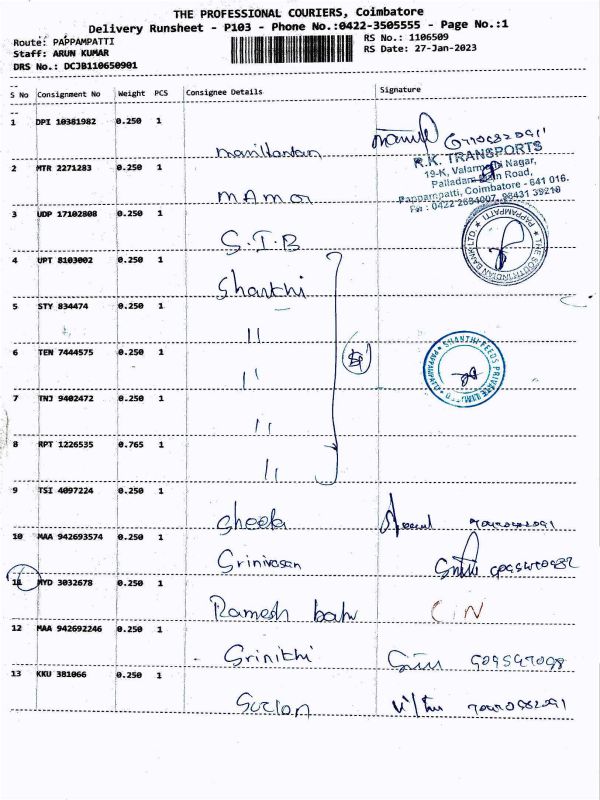 THE PROFESSIONAL COURIERS, Coimbatore
Delivery Runsheet - P103 - Phone No.:0422-3505555 - Page No.:1
Route: PAPPAMPATTI
RS No.: 1106509
Staff: ARUN KUMAR
RS Date: 27-Jan-2023
DRS No.: DCJB110650901
S No Consignment No Weight PCS Consignee Details Signature
1 DPI 10381982 0.250 1
Manikandan
R.K. TRANSPORTS
19-K, Valarmathi Nagar,
Palladam Main Road,
Pappampatti, Coimbatore - 641 016.
2 MTR 2271283 0.250 1
MAmor
3 UDP 17102808 0.250 1
S.I.B
THE SOUTH INDIAN BANK LTD. PAPPAMPATTI
4 UPT 8103002 0.250 1
Shanthi
5 STY 834474 0.250 1
"
6 TEN 7444575 0.250 1
"
SHANTHI FEEDS PRIVATE LIMITED
7 TNJ 9402472 0.250 1
"
8 RPT 1226535 0.765 1
"
9 TSI 4097224 0.250 1
Sheela
10 MAA 942693574 0.250 1
Srinivasan
11 MYD 3032678 0.250 1
Ramesh babu C/N
12 MAA 942692246 0.250 1
Srinithi
13 KKU 381066 0.250 1
Suzlon